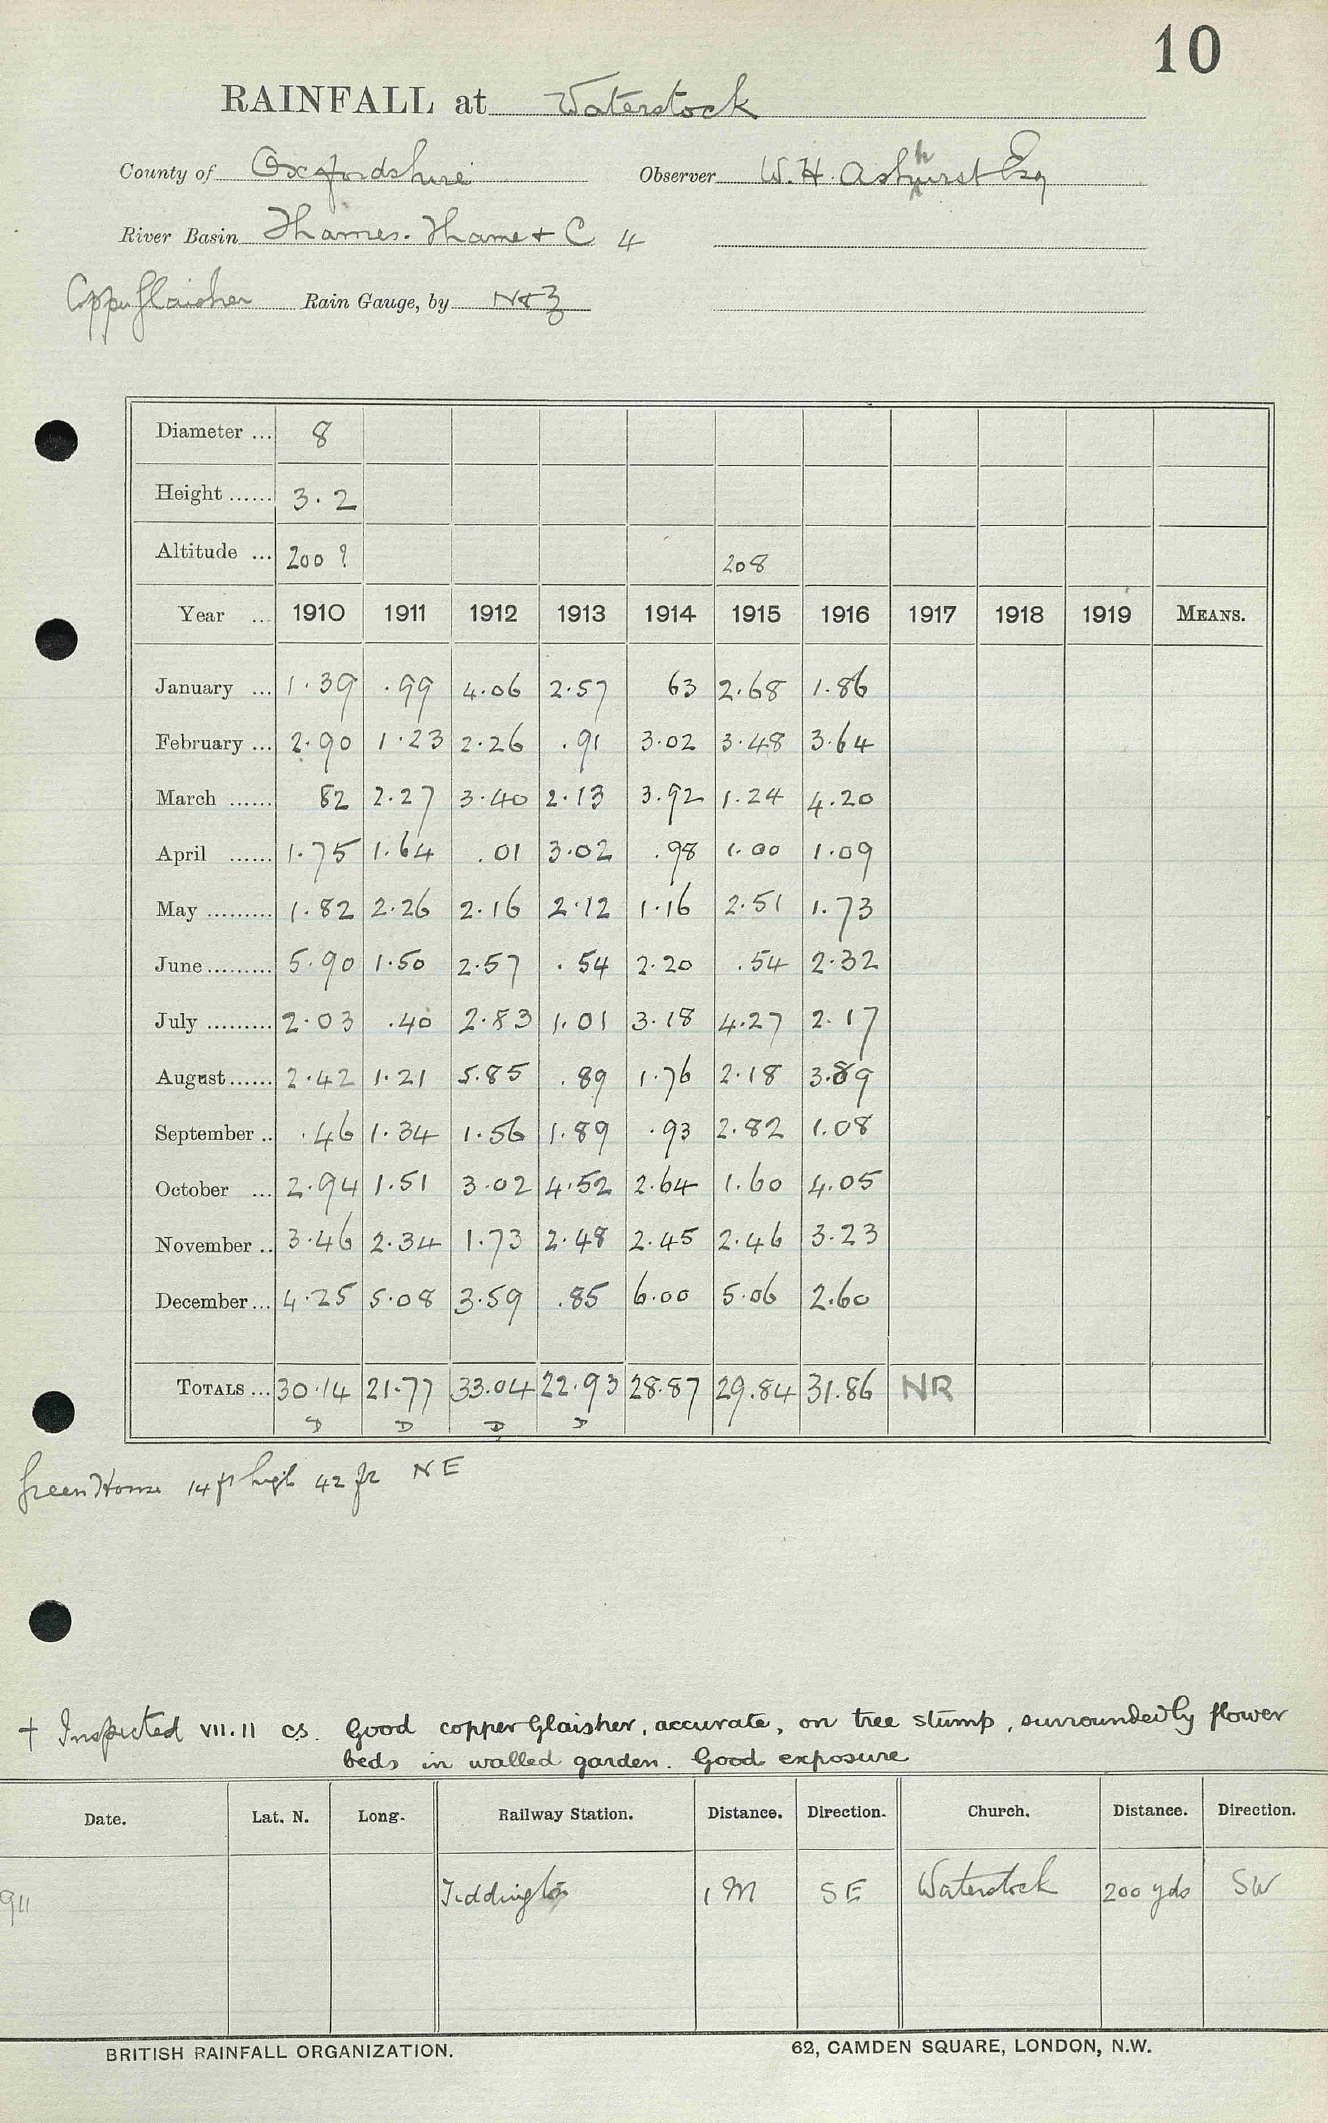 10
RAINFALL at Waterstock
County of Oxfordshire Observer W. H. Ashhurst Esq
River Basin Thames. Thame + C 4
Copper Glaisher Rain Gauge, by N & Z
Diameter ... 8
Height ...... 3.2
Altitude ... 200 ? 208
Year ... 1910 1911 1912 1913 1914 1915 1916 1917 1918 1919 MEANS.
January ... 1.39 .99 4.06 2.57 63 2.68 1.86
February ... 2.90 1.23 2.26 .91 3.02 3.48 3.64
March ...... 82 2.27 3.40 2.13 3.92 1.24 4.20
April ...... 1.75 1.64 .01 3.02 .98 1.00 1.09
May ......... 1.82 2.26 2.16 2.12 1.16 2.51 1.73
June ......... 5.90 1.50 2.57 .54 2.20 .54 2.32
July ......... 2.03 .40 2.83 1.01 3.18 4.27 2.17
August ...... 2.42 1.21 5.85 .89 1.76 2.18 3.89
September .. .46 1.34 1.56 1.89 .93 2.82 1.08
October ... 2.94 1.51 3.02 4.52 2.64 1.60 4.05
November .. 3.46 2.34 1.73 2.48 2.45 2.46 3.23
December ... 4.25 5.08 3.59 .85 6.00 5.06 2.60
TOTALS ... 30.14 21.77 33.04 22.93 28.87 29.84 31.86 NR
D D D D
Green House 14 ft high 42 ft NE
† Inspected VII.11 c.s. Good copper Glaisher, accurate, on tree stump, surrounded by flower
beds in walled garden. Good exposure
Date. Lat. N. Long. Railway Station. Distance. Direction. Church. Distance. Direction.
911 Tiddington 1 M SE Waterstock 200 yds SW
BRITISH RAINFALL ORGANIZATION. 62, CAMDEN SQUARE, LONDON, N.W.